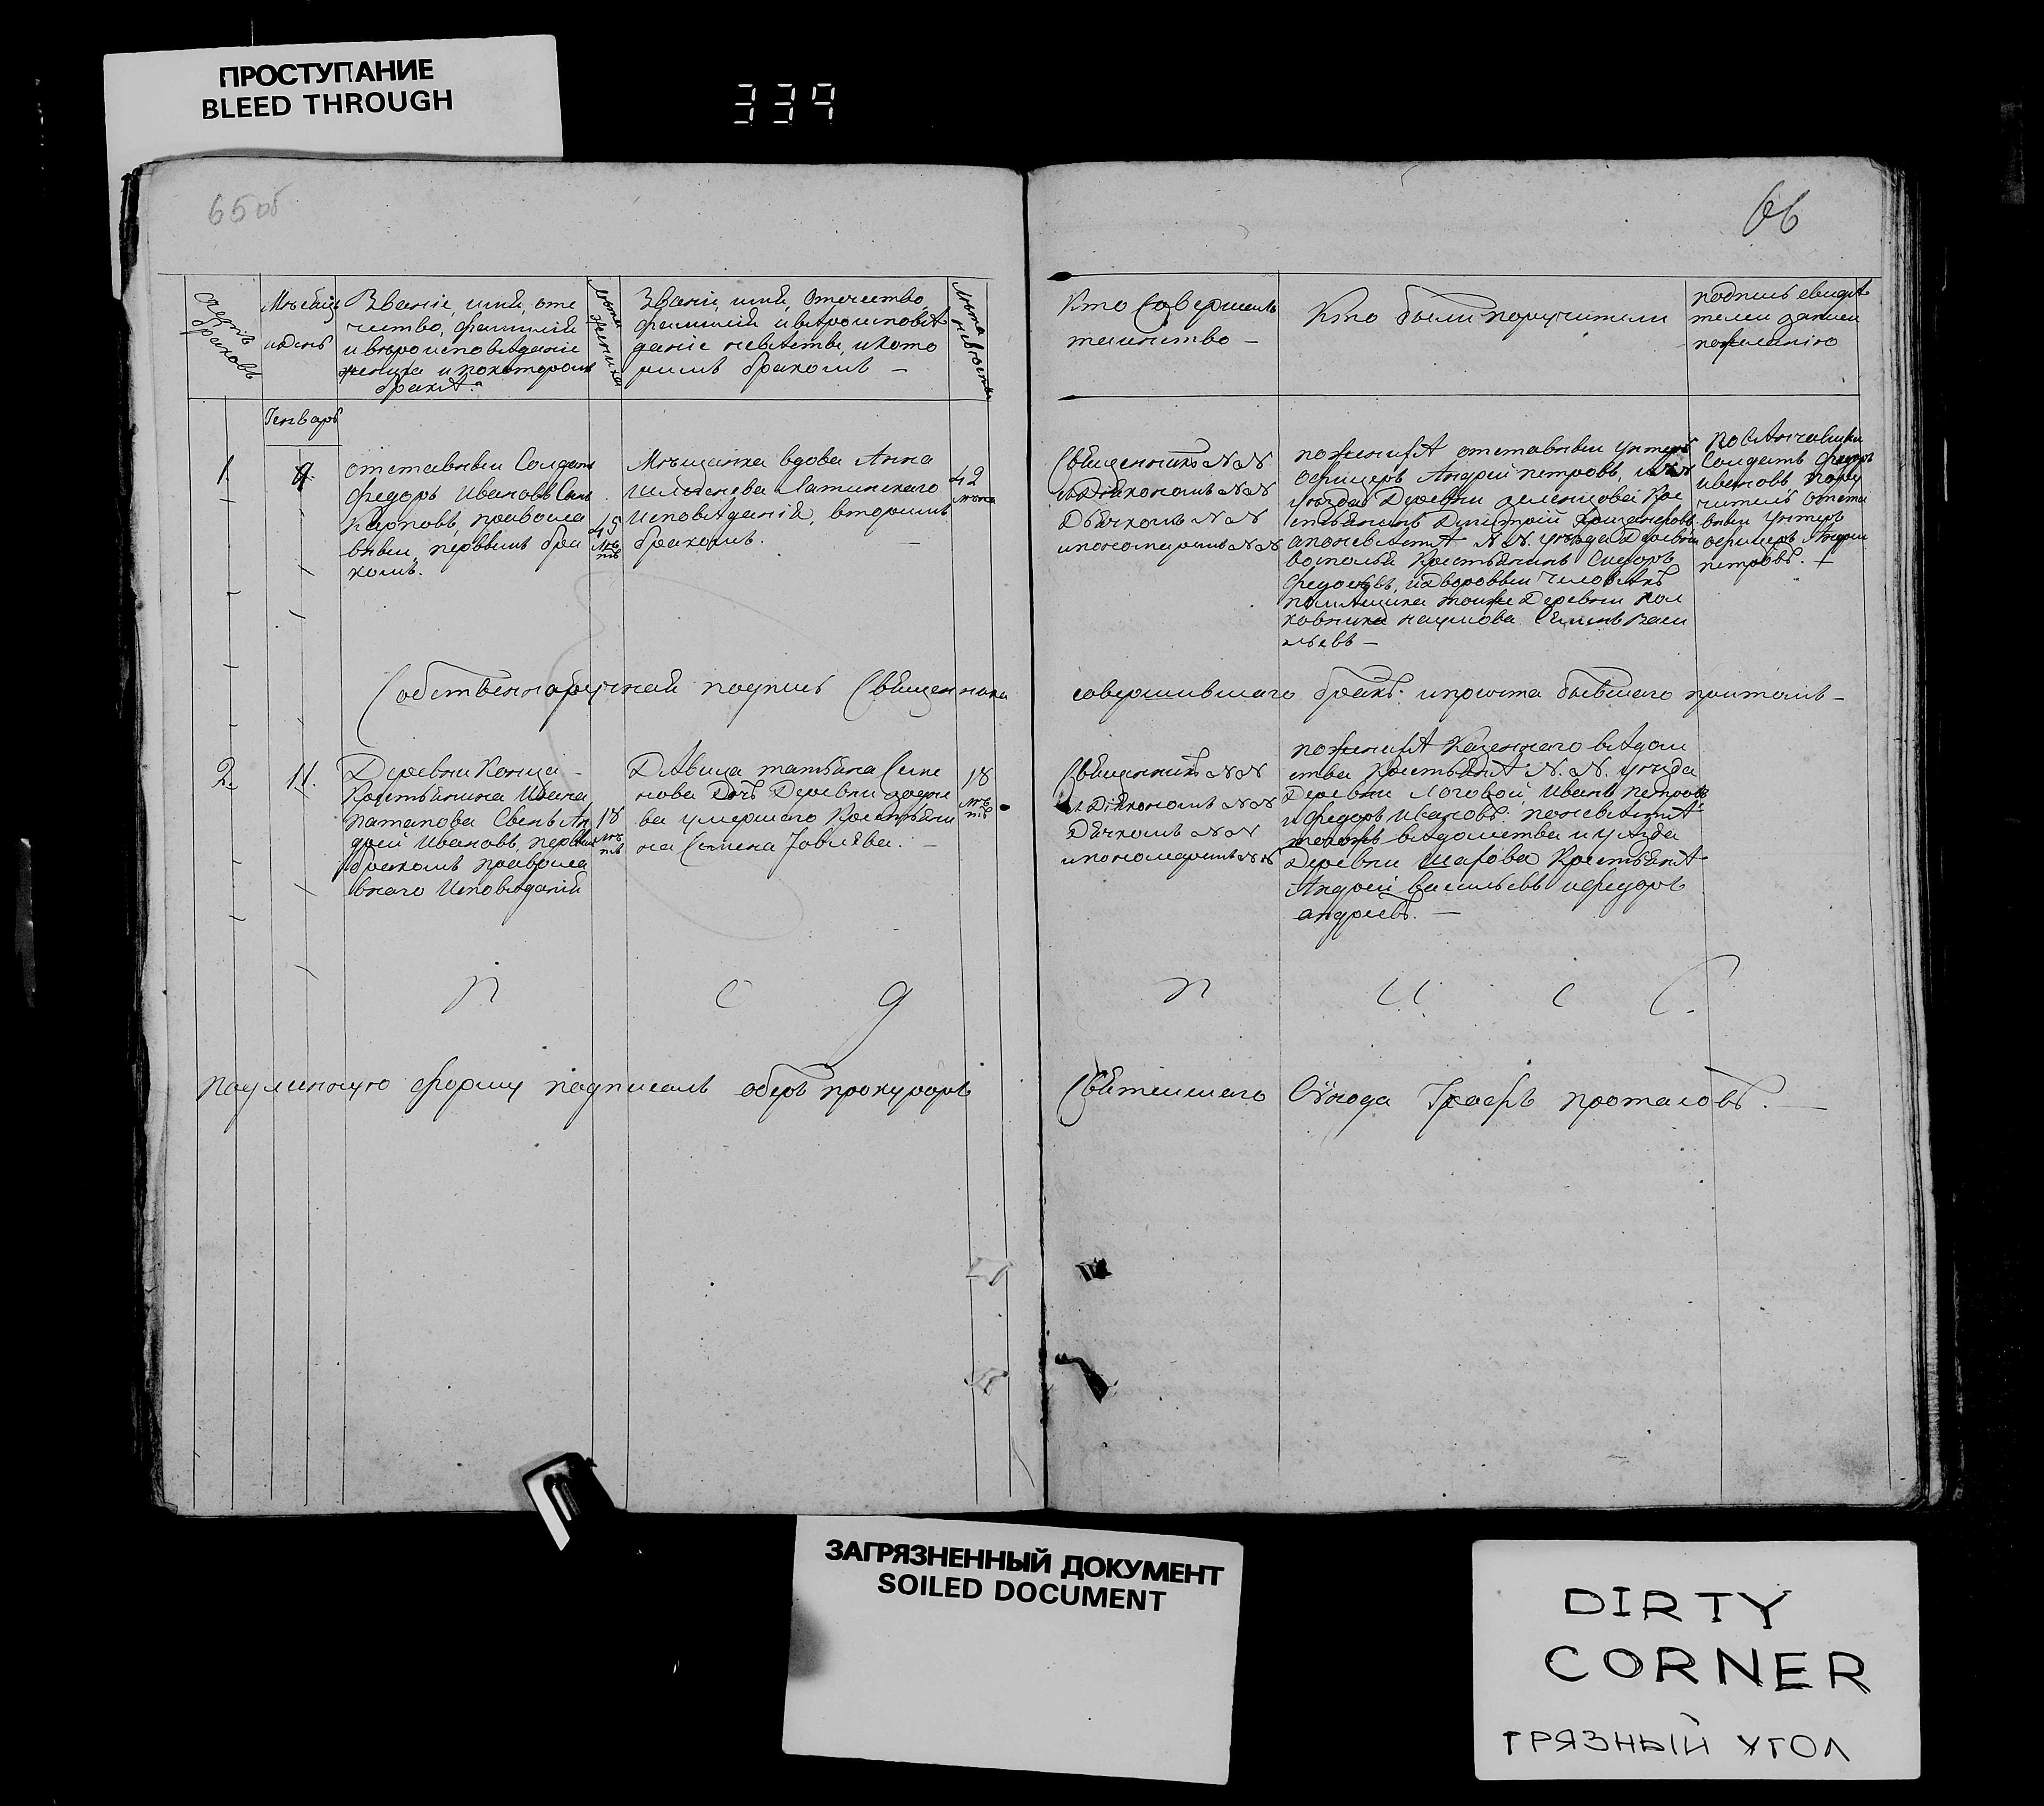 ПРОСТУПАНИЕ
BLEED THROUGH
339
65 об
66
Счетъ браковъ
Мѣсяцъ и день
Званіе, имя, оте
чество, фамилія
и вѣроисповѣданіе
жениха и которымъ
бракѣ.
Лѣта жениха
Званіе, имя, отечество,
фамилія и вѣроисповѣ
даніе невѣсты, и кото
рымъ бракомъ —
Лѣта невѣсты
Кто совершалъ
таинство —
Кто были поручители
подпись свидѣ
телей записи
по желанію
Генварь
1.
9
отставный Солдатъ
Федоръ Ивановъ Сынъ
Карповъ, правосла
вный, первымъ бра
комъ.
45
лѣтъ
Мѣщанка вдова Анна
Латинскаго
исповѣданія, вторымъ
бракомъ. —
42
Священникъ N N
и Діакономъ N N
Дьячкомъ N N
и пономаремъ N N
по женихѣ отставный унтеръ
офицеръ Андрей Петровъ, и N N
уѣзда Деревни Зеленцова Кре
стьянинъ Дмитрій
а по невѣстѣ N N. уѣзда Деревни
крестьянинъ Сидоръ
Федоровъ, и дворовый человѣкъ
помѣщика тойже Деревни пол
ковника Наумова Семенъ Васи
льевъ —
Солдатъ Федоръ
Ивановъ пору
читель отста
вный унтеръ
офицеръ Андрей
Петровъ.
Собственноручная подпись Священника
совершившаго бракъ и причта бывшаго притомъ —
2
11.
Деревни
Крестьянина Ивана
Патапова Сынъ Ан
дрей Ивановъ, первымъ
бракомъ правосла
внаго исповѣданія
18
лѣтъ
Дѣвица Татьяна Семе
нова Дочь Деревни
ва умершаго Крестьяни
на Семена Іовлева. —
18
лѣтъ
Священникъ N N
и Діакономъ N N
Дьячкомъ N N
и пономаремъ N N
по женихѣ Казеннаго вѣдом
ства Крестьянѣ N. N. уѣзда
Деревни Логовой Иванъ Петровъ
и Федоръ Ивановъ: по невѣстѣ
тогожъ вѣдомства и уѣзда
Деревни Шахова Крестьянѣ
Андрей Васильевъ и Федоръ
Андреевъ. —
П С д
П и С С.
Подлинную форму подписалъ оберъ прокуроръ
Святейшаго Сѵнода Графъ Протасовъ. —
ЗАГРЯЗНЕННЫЙ ДОКУМЕНТ
SOILED DOCUMENT
DIRTY
CORNER
ГРЯЗНЫЙ УГОЛ